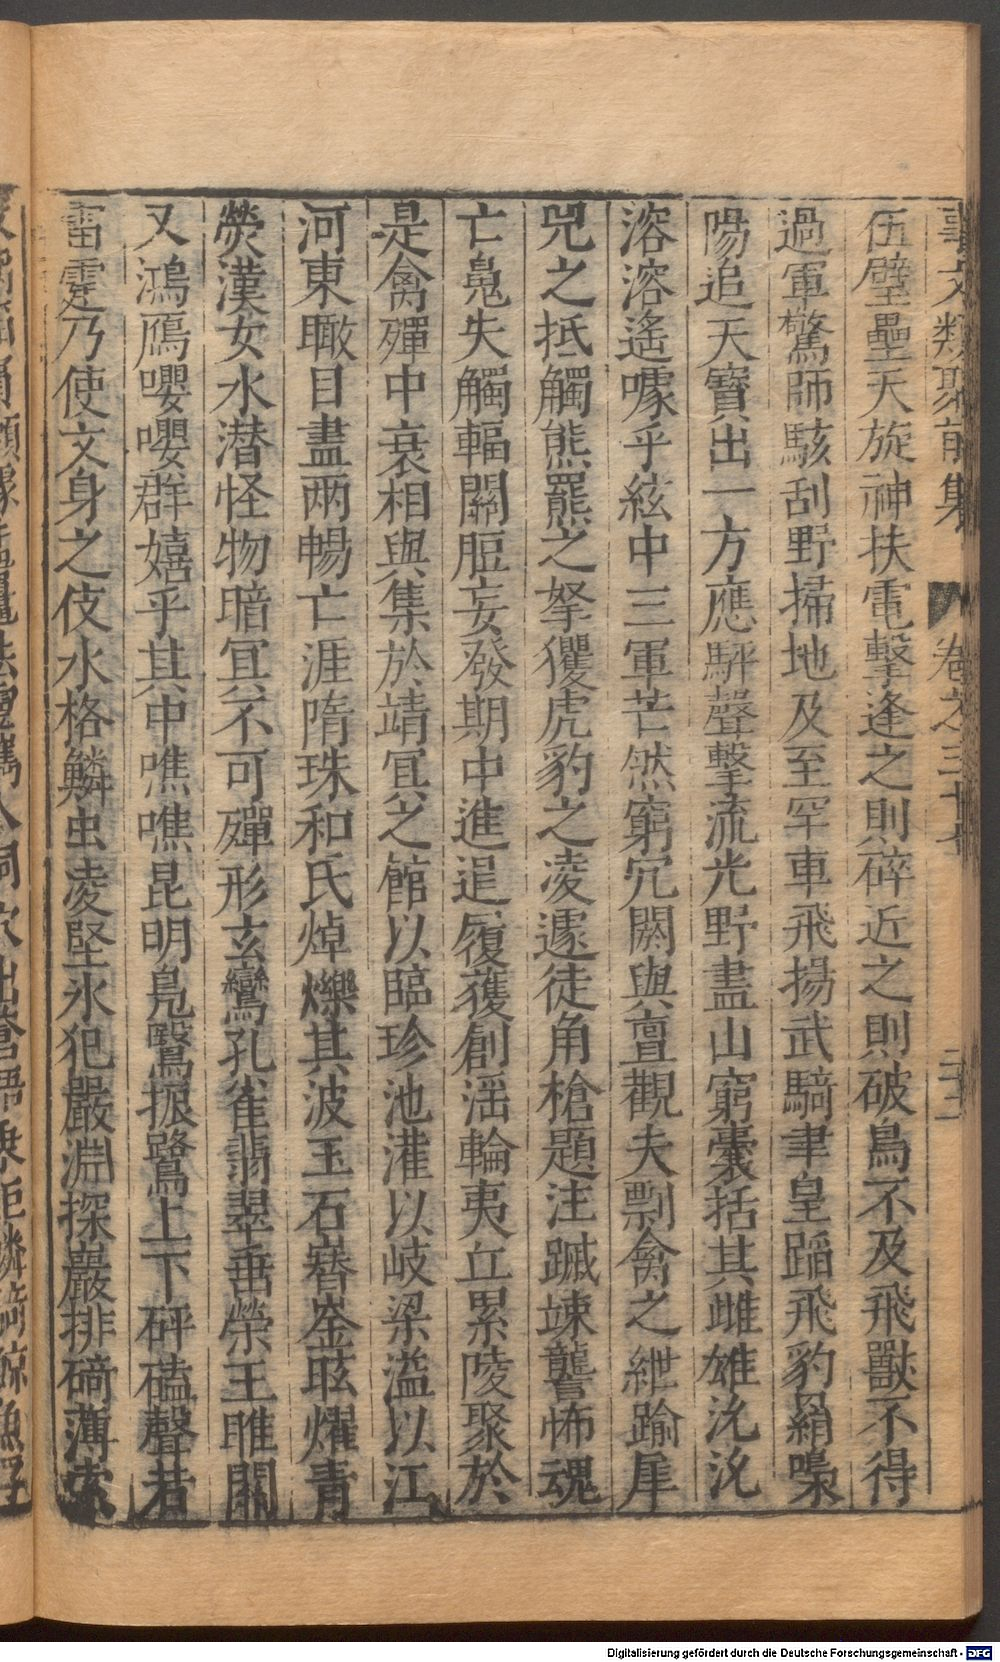 事文類聚前集 卷之三十七
伍壁壘天旋神扶電擊逢之則碎近之則破鳥不及飛獸不得
過軍驚師駭刮野掃地及至罕車飛揚武騎聿皇蹈飛豹絹嘄
陽追天寶出一方應駍聲擊流光野盡山窮囊括其雌雄沇沇
溶溶遙噱乎紘中三軍芒然窮冗閼與亶觀夫剽禽之紲踰犀
兕之抵觸熊羆之拏玃虎豹之凌遽徒角槍題注䠞竦讋怖魂
亡䰟失觸輻關脰妄發期中進退履獲創淫輪夷丘累陵聚於
是禽殫中衰相與集於靖冥之館以臨珍池灌以岐梁溢以江
河東瞰目盡兩暢亡涯隋珠和氏焯爍其波玉石嶜崟眩燿青
熒漢女水潛怪物暗冥不可殫形玄鸞孔雀翡翠垂榮王雎關
又鴻鴈嚶嚶群嬉乎其中噍噍昆明鳧鷖振鷺上下砰磕聲若
雷霆乃使文身之伎水格鱗虫凌堅氷犯嚴淵探巖排碕薄索
Digitalisierung gefördert durch die Deutsche Forschungsgemeinschaft - DFG